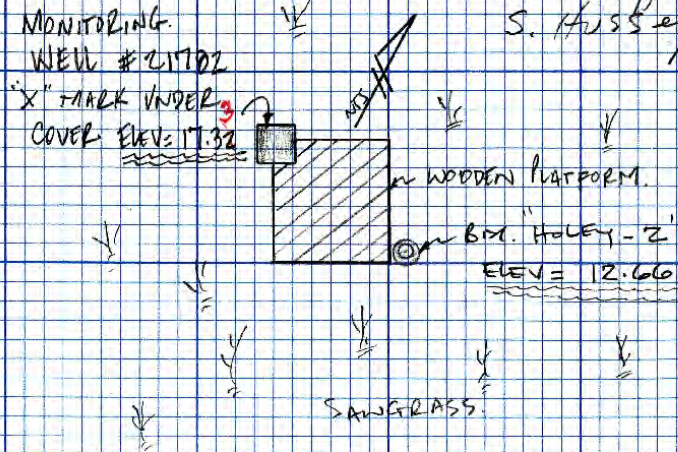 MONITORING
WELL #21702
"X" MARK UNDER
COVER ELEV= 17.32
3
S. Husse
WOODEN PLATFORM.
B.M. "HOLEY-2"
ELEV = 12.66
SAWGRASS.